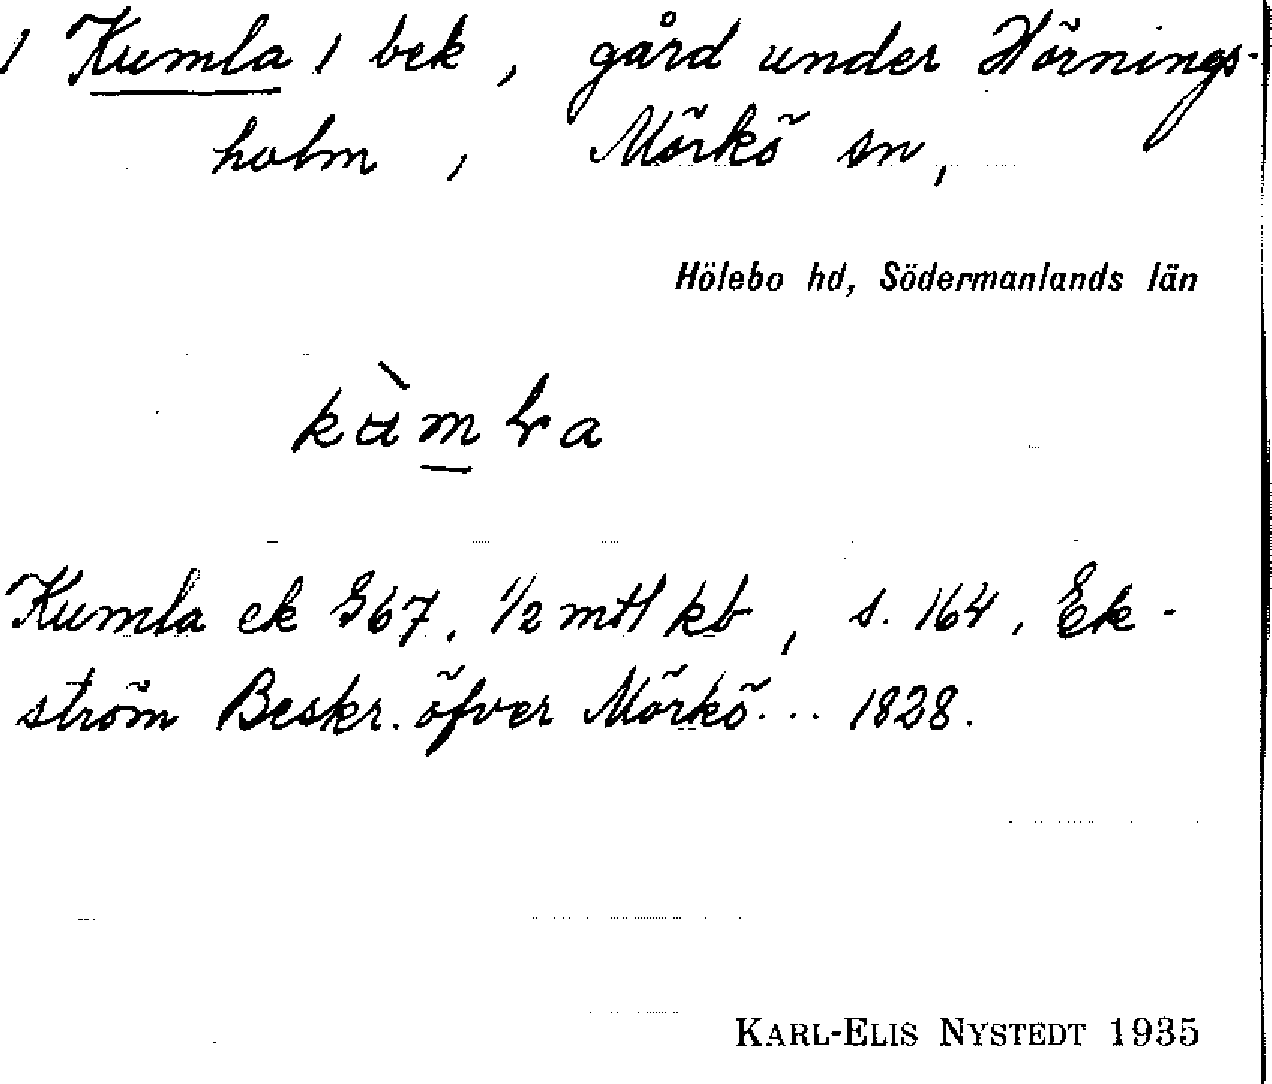 / Kumla / bek, gård under Hörnings-
holm, Mörkö sn,
Hölebo hd, Södermanlands län
Kumla ek 367. 1/2 mtl kb, s. 164, Ek-
ström Beskr. öfver Mörkö... 1828.
KARL-ELIS NYSTEDT 1935